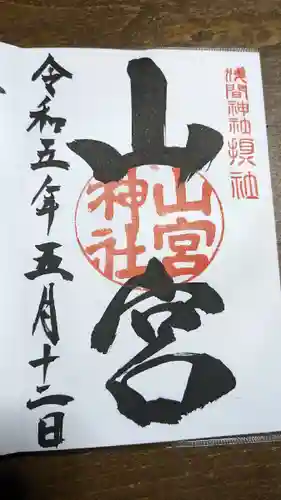 浅間神社摂社
山宮
山宮
神社
令和五年五月十二日